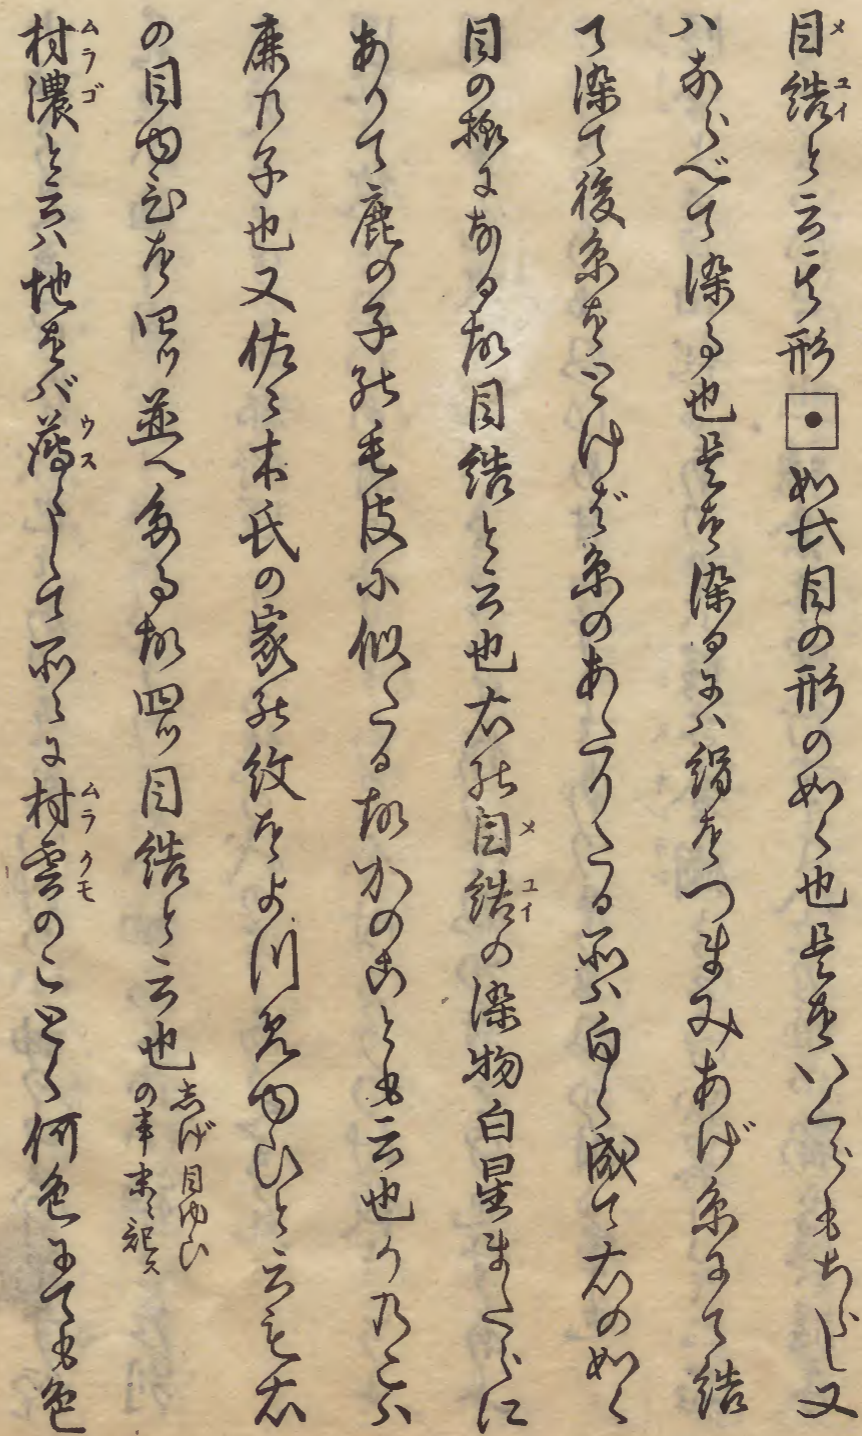 目結と云其形⊡如此目の形の如く也是をいくらもちらし又
ハならべて染る也是を染るにハ絹をつまみあげ糸にて結
て染て後糸をとけば糸のあたりたる所ハ白く成て右の如く
目の極になる故目結と云也右の目結の染物白星まだらに
ありて鹿の子の毛皮に似たる故かのことも云也かのこハ
鹿の子也又佐々木氏の家の紋をよつめゆひと云も右
の目ゆひを四ッ並へたる故四ッ目結と云也しげ目ゆひの事末ニ記ス
村濃と云ハ地をバ薄くして所々に村雲のことく何色にても色
メユイ
メユイ
ムラゴ
ウス
ムラクモ